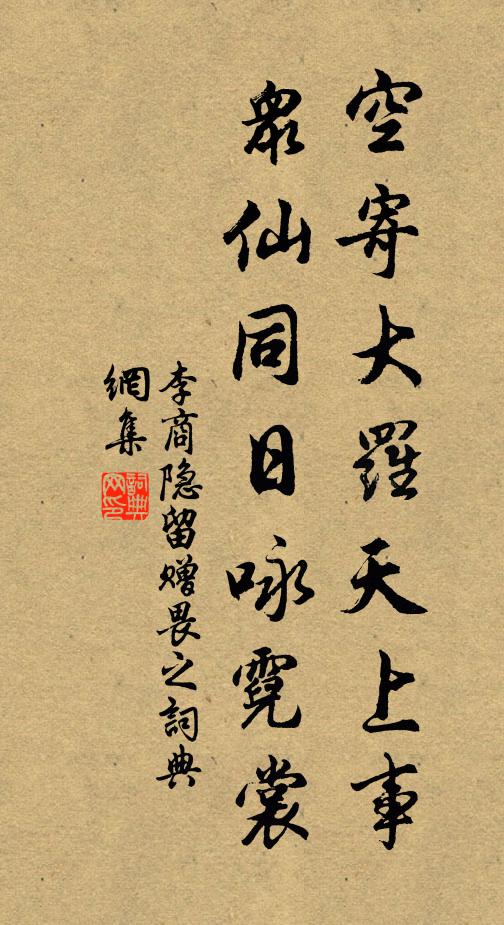 空寄大羅天上事
眾仙同日咏霓裳
李商隐留赠畏之詞典
網集
詞典
网印